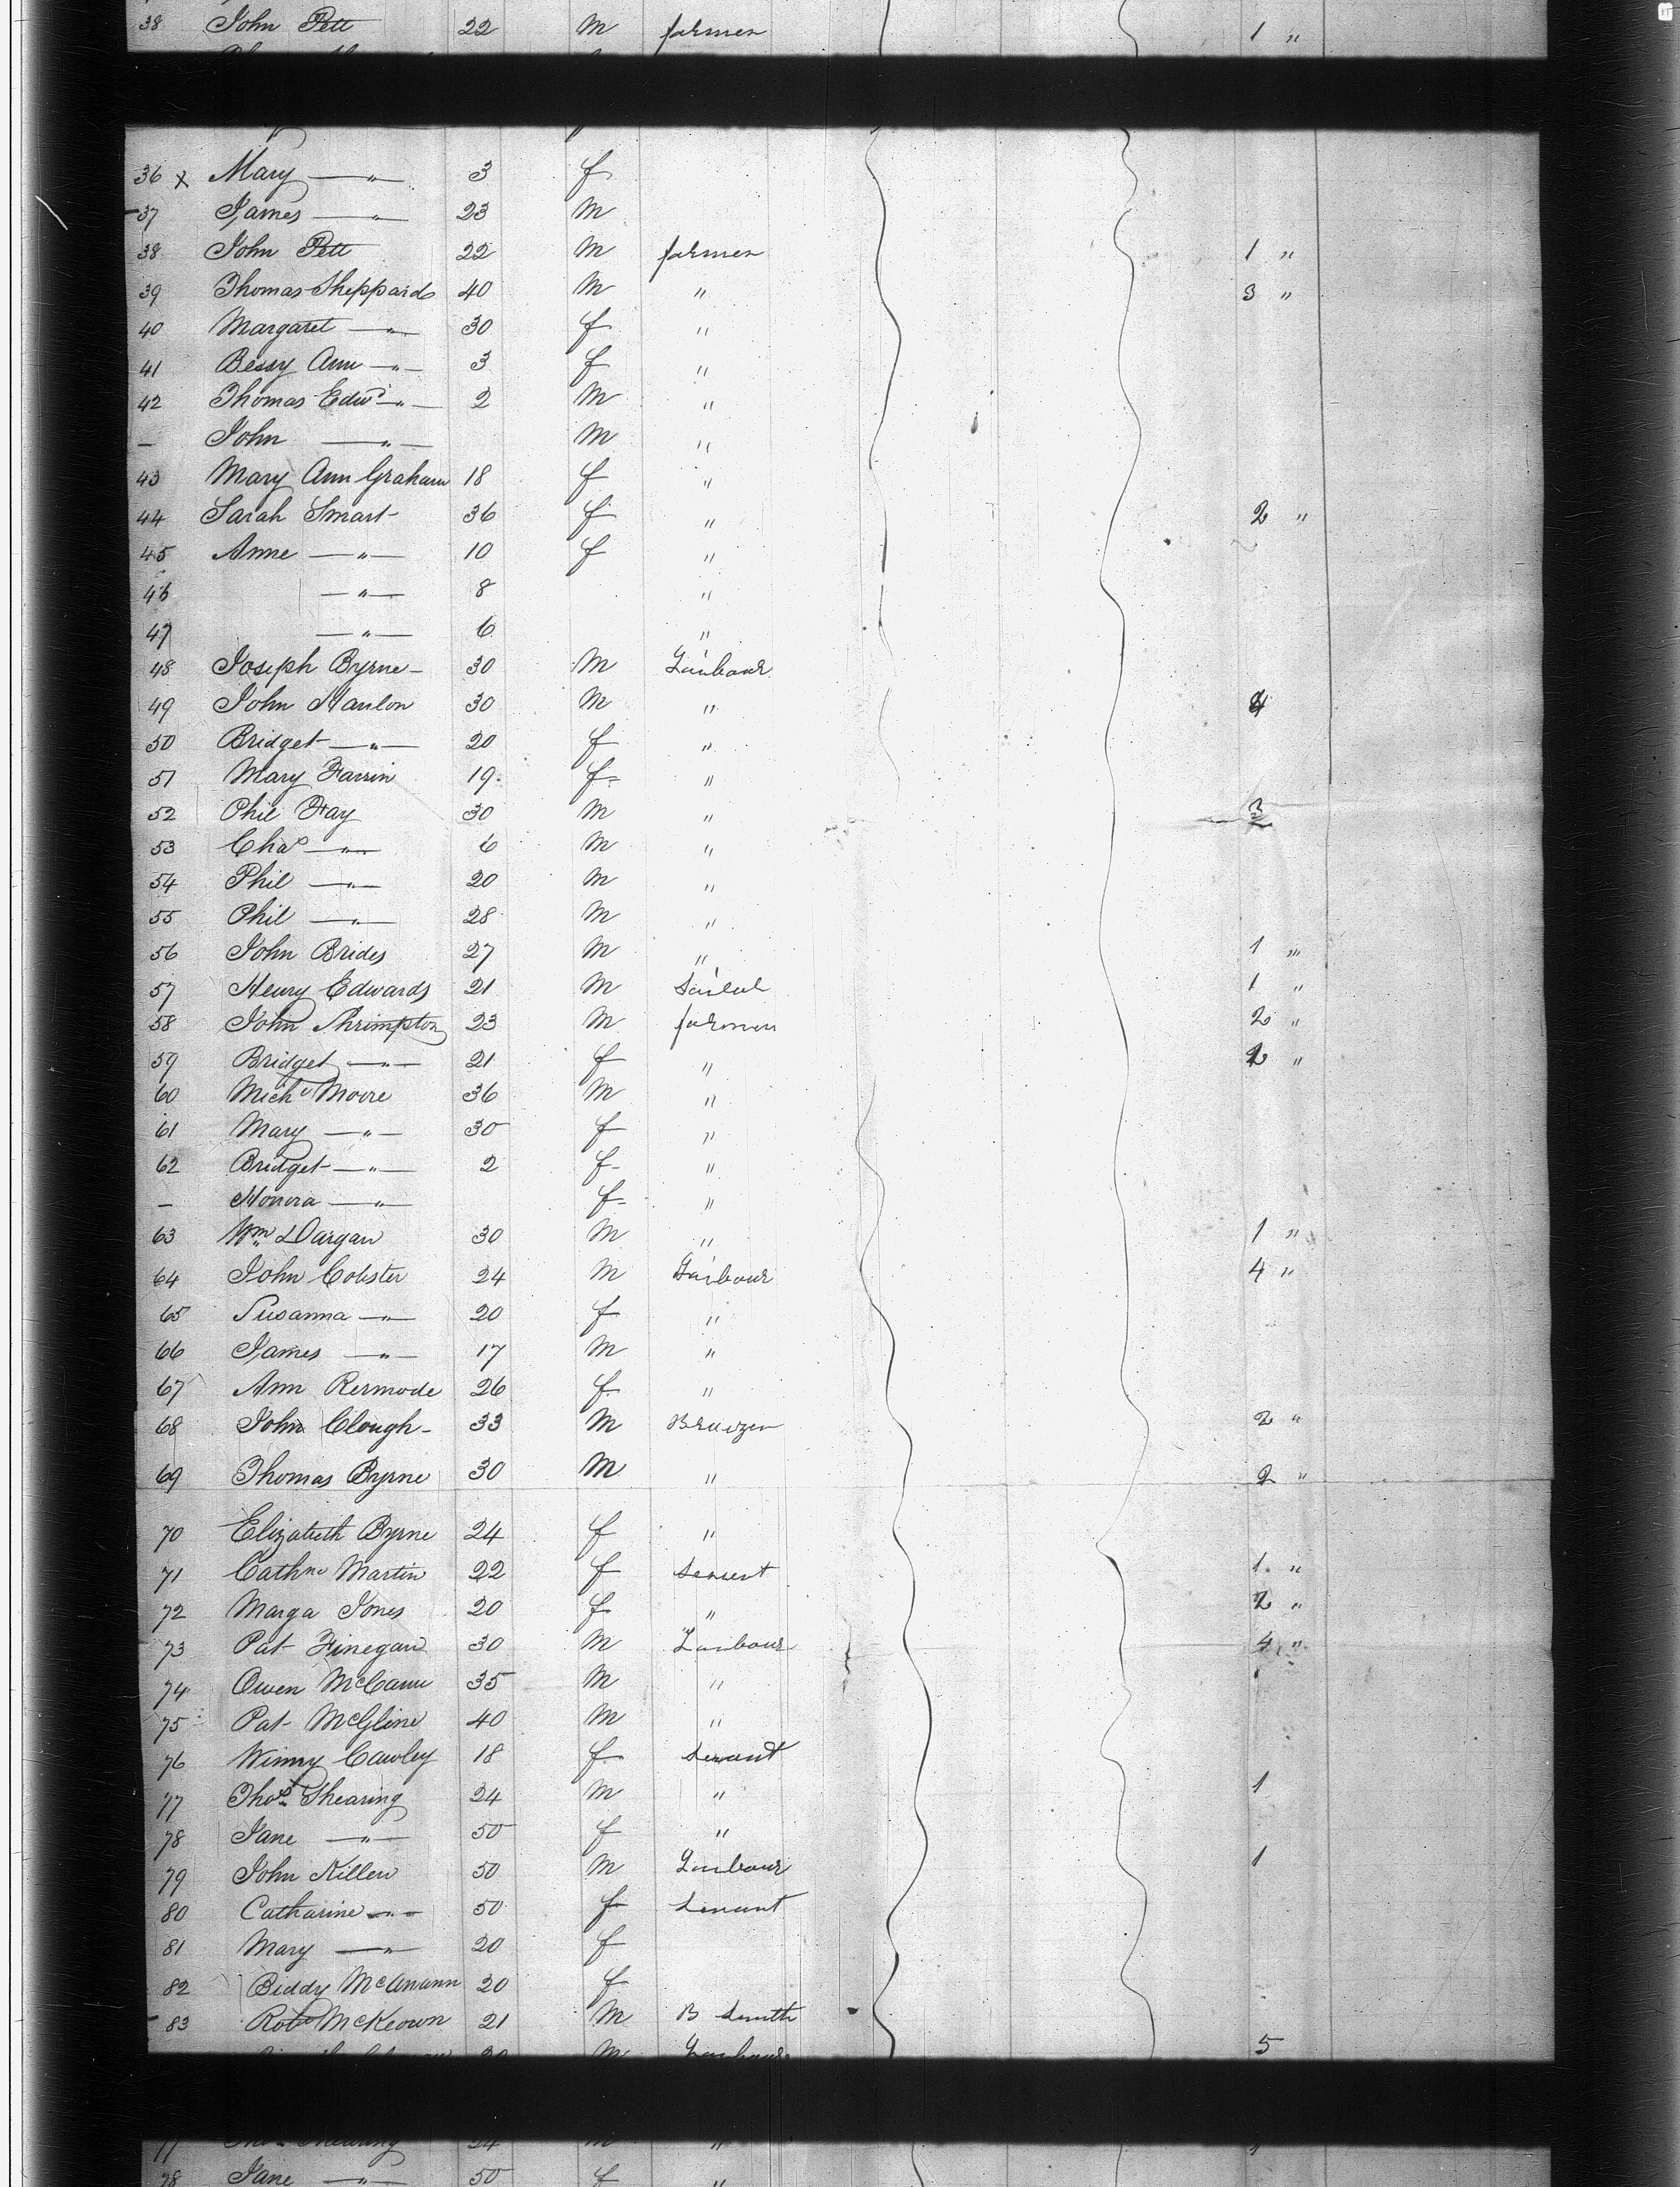 38 John Pett 22 M farmer 1 "
36 x Mary — " — 3 f
37 James — " — 23 M
38 John Pett 22 M farmer 1 "
39 Thomas Sheppard 40 M " 3 "
40 Margaret — " — 30 f "
41 Bessy Ann — " — 3 f "
42 Thomas Edwd — " — 2 M "
— John — " — M "
43 Mary Ann Graham 18 f "
44 Sarah Smart 36 f " 2 "
45 Anne — " — 10 f "
46 — " — 8 "
47 — " — 6 "
48 Joseph Byrne - 30 M Laibour
49 John Hanlon 30 M " 4
50 Bridget — " — 20 f "
51 Mary Farrin 19 f "
52 Phil Fay 30 M " 3
53 Chas — " — 6 M "
54 Phil — " — 20 M "
55 Phil — " — 28 M "
56 John Brides 27 M " 1 "
57 Henry Edwards 21 M 1 "
58 John Shrimpton 23 M farmer 2 "
59 Bridget — " — 21 f " 2 "
60 Michl Moore 36 M "
61 Mary — " — 30 f "
62 Bridget — " — 2 f "
— Honora — " — f "
63 Wm Dargan 30 M " 1 "
64 John Cobster 24 M Laibour 4 "
65 Susanna — " — 20 f "
66 James — " — 17 M "
67 Ann Rermode 26 f "
68 John Clough - 33 M 2 "
69 Thomas Byrne 30 M " 2 "
70 Elizabeth Byrne 24 f "
71 Cathne Martin 22 f 1 "
72 Marga Jones 20 f " 2 "
73 Pat Finegan 30 M Laibour 4 "
74 Owen McCann 35 M "
75 Pat McGline 40 M "
76 Winny Cawley 18 f Servant
77 Thos Shearing 24 M " 1
78 Jane — " — 50 f "
79 John Killen 50 M Laibour 1
80 Catharine — " — 50 f Servant
81 Mary — " — 20 f
82 Biddy McAnann 20 f
83 Robt McKeown 21 M B Smith
M Laibour 5
77 Thos Shearing 24 M " 1
78 Jane — " — 50 f "